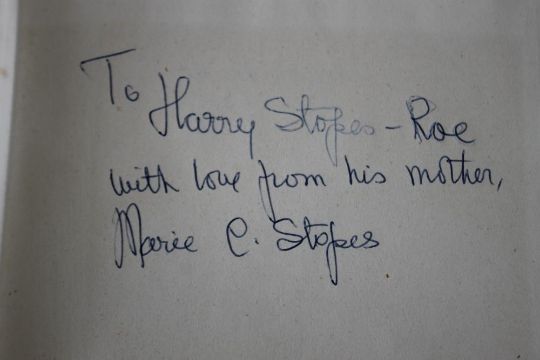 To
Harry Stopes-Roe
with love from his mother,
Marie C. Stopes